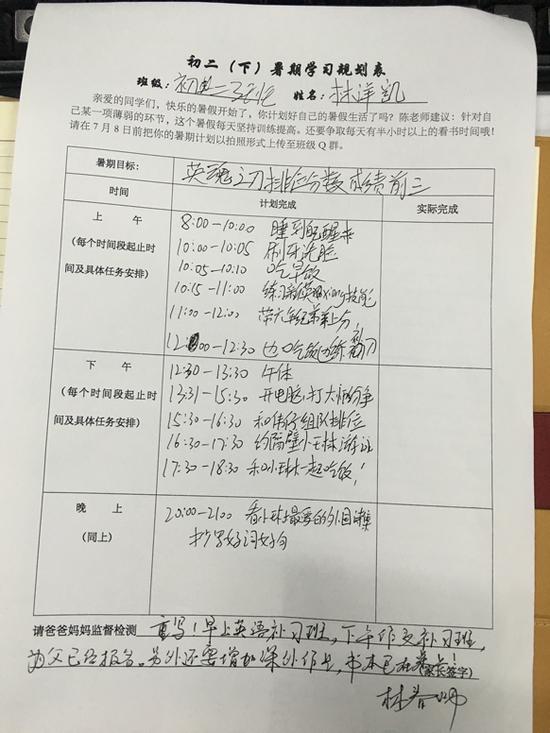 初二（下）暑期学习规划表
班级: 初二 姓名: 林洋凯
亲爱的同学们，快乐的暑假开始了，你计划好自己的暑假生活了吗？陈老师建议：针对自
己某一项薄弱的环节，这个暑假每天坚持训练提高。还要争取每天有半小时以上的看书时间哦!
请在7月8日前把你的暑期计划以拍照形式上传至班级Q群。
暑期目标: 英魂之刃排位分数成绩前三
时间 计划完成 实际完成
上 午
(每个时间段起止时
间及具体任务安排)
8:00—10:00 睡到醒来
10:00—10:05 刷牙洗脸
10:05—10:10 吃早饭
10:15—11:00 练习新英雄技能
11:00—12:00 带六年纪弟弟上分
12:00—12:30
下 午
(每个时间段起止时
间及具体任务安排)
12:30—13:30 午休
13:31—15:30 开电脑,打
15:30—16:30 和组队排位
16:30—17:30 约隔壁小王林
17:30—18:30 和小林一起吃饭!
晚 上
(同上)
20:00—21:00 看小林最爱的外国
抄写好词好句
请爸爸妈妈监督检测 重写!早上英语补习班,下午作文补习班,
为父已经报名。另外还要增加课外作业,书本已在
(家长签字)
林